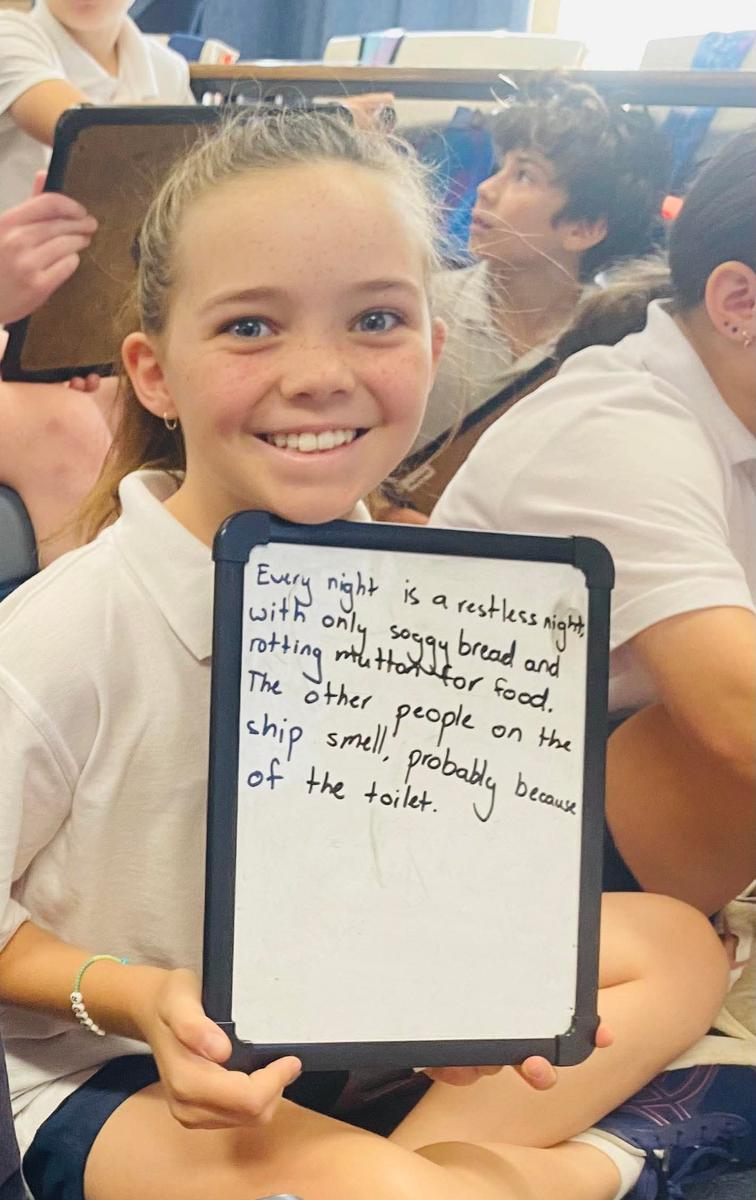 Every night is a restless night,
with only soggy bread and
rotting mutton for food.
The other people on the
ship smell, probably because
of the toilet.